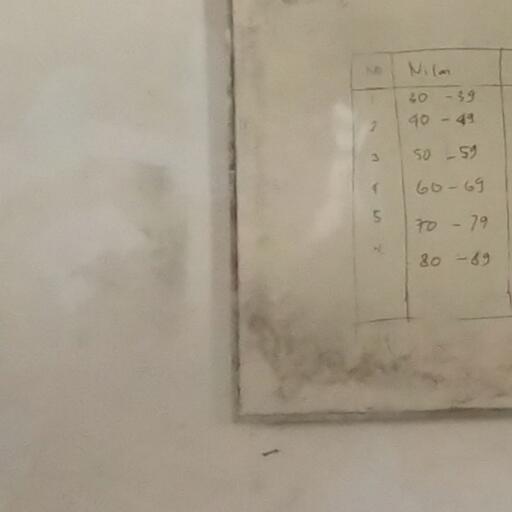 No Nilai
1 30 - 39
2 40 - 49
3 50 - 59
4 60 - 69
5 70 - 79
80 - 89